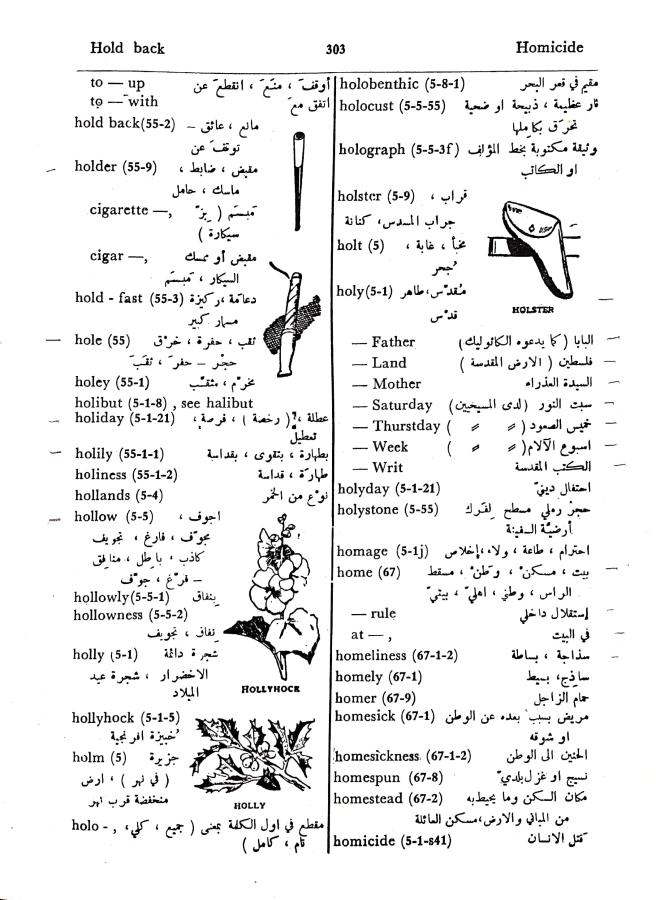 Hold back 303 Homicide
to — up أوقف ، منع ، انقطع عن
to — with اتفق مع
hold back(55-2) مانع ، عائق –
توقف عن
holder (55-9) مقبض ، ضابط ،
ماسك ، حامل
cigarette —, مبسم ( بز
سيكارة )
cigar —, مقبض أو ممسك
السيكار ، مبسم
hold - fast (55-3) دعامة ،ركيزة
مسمار كبير
hole (55) ثقب ، حفرة ، خرق
حجر – حفر ، ثقب
holey (55-1) مخرم ، مثقب
holibut (5-1-8) , see halibut
holiday (5-1-21) عطلة ،( رخصة ) ، فرصة ،
تعطيل
holily (55-1-1) بطهارة ، بتقوى ، بقداسة
holiness (55-1-2) طهارة ، قداسة
hollands (5-4) نوع من الخمر
hollow (5-5) اجوف ،
مجوف ، فارغ ، تجويف
كاذب ، باطل ، منافق
– فرغ ، جوف
hollowly(5-5-1) بنفاق
hollowness (5-5-2)
نفاق ، تجويف
holly (5-1) شجرة دائمة
الاخضرار ، شجرة عيد
الميلاد
HOLLYHOCK
hollyhock (5-1-5)
خبيزة افرنجية
holm (5) جزيرة
( في نهر ) ، ارض
منخفضة قرب نهر
HOLLY
holo - , مقطع في اول الكلمة بمعنى ( جميع ، كلي ،
تام ، كامل )
holobenthic (5-8-1) مقيم في قعر البحر
holocust (5-5-55) نار عظيمة ، ذبيحة او ضحية
تحرق بكاملها
holograph (5-5-3f) وثيقة مكتوبة بخط المؤلف
او الكاتب
holster (5-9) قراب ،
جراب المسدس، كنانة
holt (5) مخبأ ، غابة ،
جحر
holy(5-1) مقدس،طاهر
قدس
HOLSTER
— Father البابا ( كما يدعوه الكاثوليك )
— Land فلسطين ( الارض المقدسة )
— Mother السيدة العذراء
— Saturday سبت النور ( لدى المسيحيين )
— Thurstday خميس الصعود ( 〃 〃 )
— Week اسبوع الآلام ( 〃 〃 )
— Writ الكتب المقدسة
holyday (5-1-21) احتفال ديني
holystone (5-55) حجر رملي مسطح لفرك
أرضية السفينة
homage (5-1j) احترام ، طاعة ، ولاء،إخلاص
home (67) بيت ، مسكن ، وطن ، مسقط
الراس ، وطني ، اهلي ، بيتي
— rule إستقلال داخلي
at — , في البيت
homeliness (67-1-2) سذاجة ، بساطة
homely (67-1) ساذج، بسيط
homer (67-9) حمام الزاجل
homesick (67-1) مريض بسبب بعده عن الوطن
او شوقه
homesickness (67-1-2) الحنين الى الوطن
homespun (67-8) نسيج او غزل بلدي
homestead (67-2) مكان السكن وما يحيط به
من المباني والارض،مسكن العائلة
homicide (5-1-s41) قتل الانسان